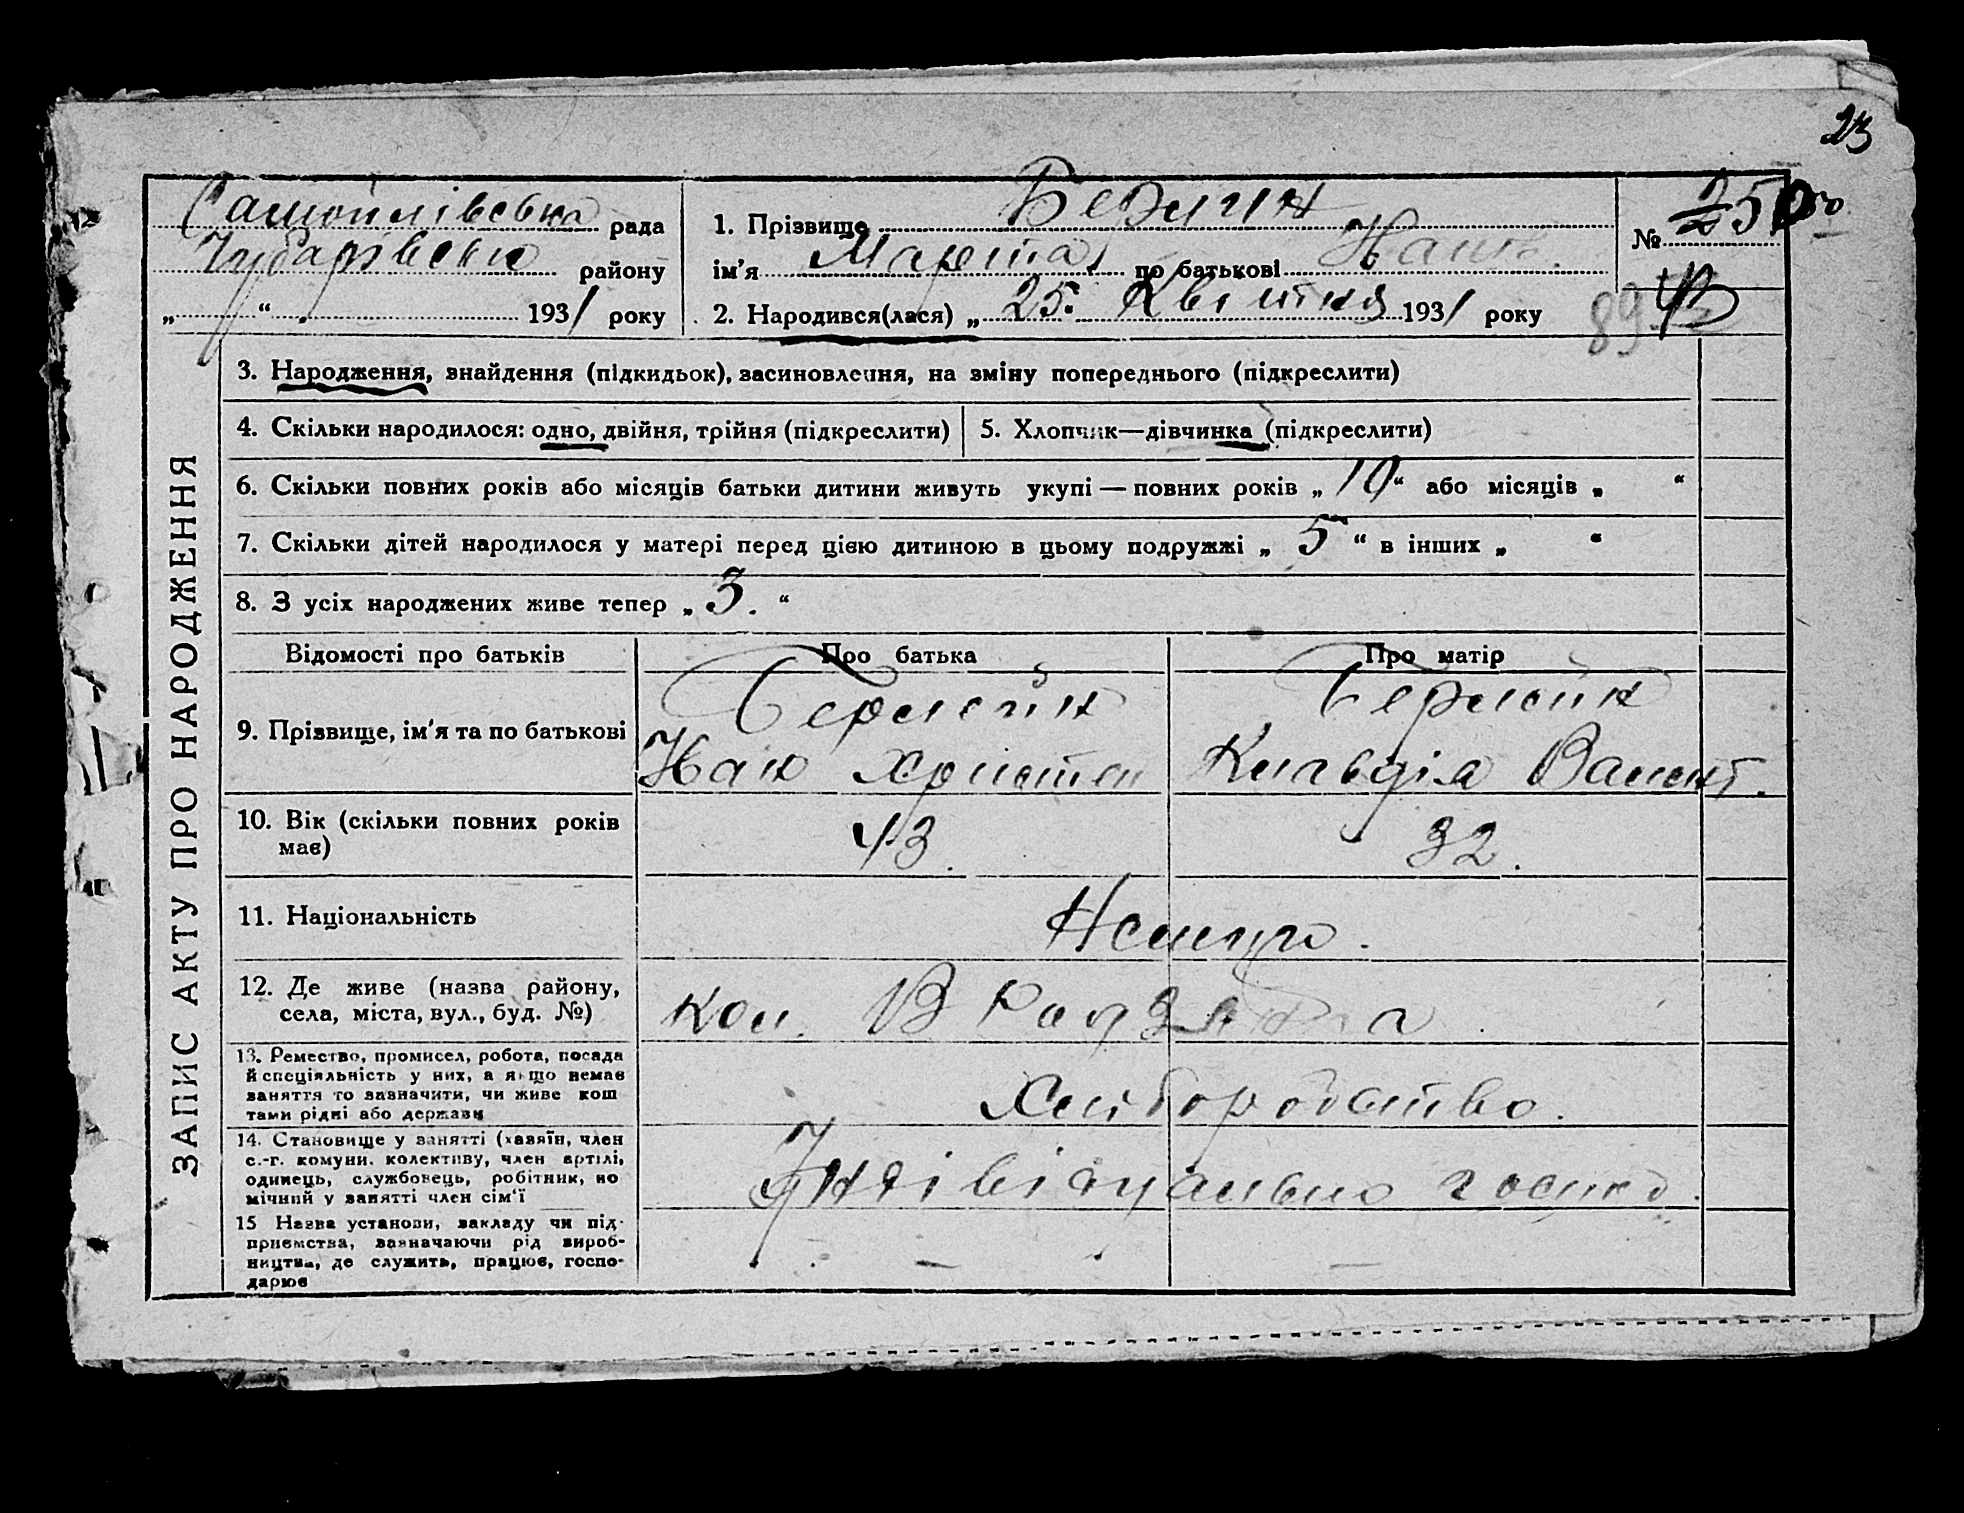 23
Самойлівська рада
Чубарівська району
„ “ 1931 року
1. Прізвище
ім’я Марта по батькові
2. Народився(лася) „ 25. Квітня 1931 року
№
89
3. Народження, знайдення (підкидьок), засиновлення, на зміну попереднього (підкреслити)
4. Скільки народилося: одно, двійня, трійня (підкреслити)
5. Хлопчик—дівчинка (підкреслити)
6. Скільки повних років або місяців батьки дитини живуть укупі — повних років „ 10 “ або місяців „ “
7. Скільки дітей народилося у матері перед цією дитиною в цьому подружжі „ 5 “ в інших „ “
8. З усіх народжених живе тепер „ 3. “
Відомості про батьків
Про батька
Про матір
9. Прізвище, ім’я та по батькові
10. Вік (скільки повних років
має)
43.
32.
11. Національність
12. Де живе (назва району,
села, міста, вул., буд. №)
кол.
13. Ремество, промисел, робота, посада
й спеціяльність у них, а якщо немає
заняття то зазначити, чи живе кош
тами рідні або держави
Хліборобство.
14. Становище у занятті (хазяїн, член
с.-г. комуни. колективу, член артілі,
одинець, службовець, робітник, по
мічний у занятті член сім’ї
Індівідуально господ.
15 Назва установи, закладу чи під-
приємства, зазначаючи рід вироб-
ництва, де служить, працює, госпо-
дарює
— —
ЗАПИС АКТУ ПРО НАРОДЖЕННЯ